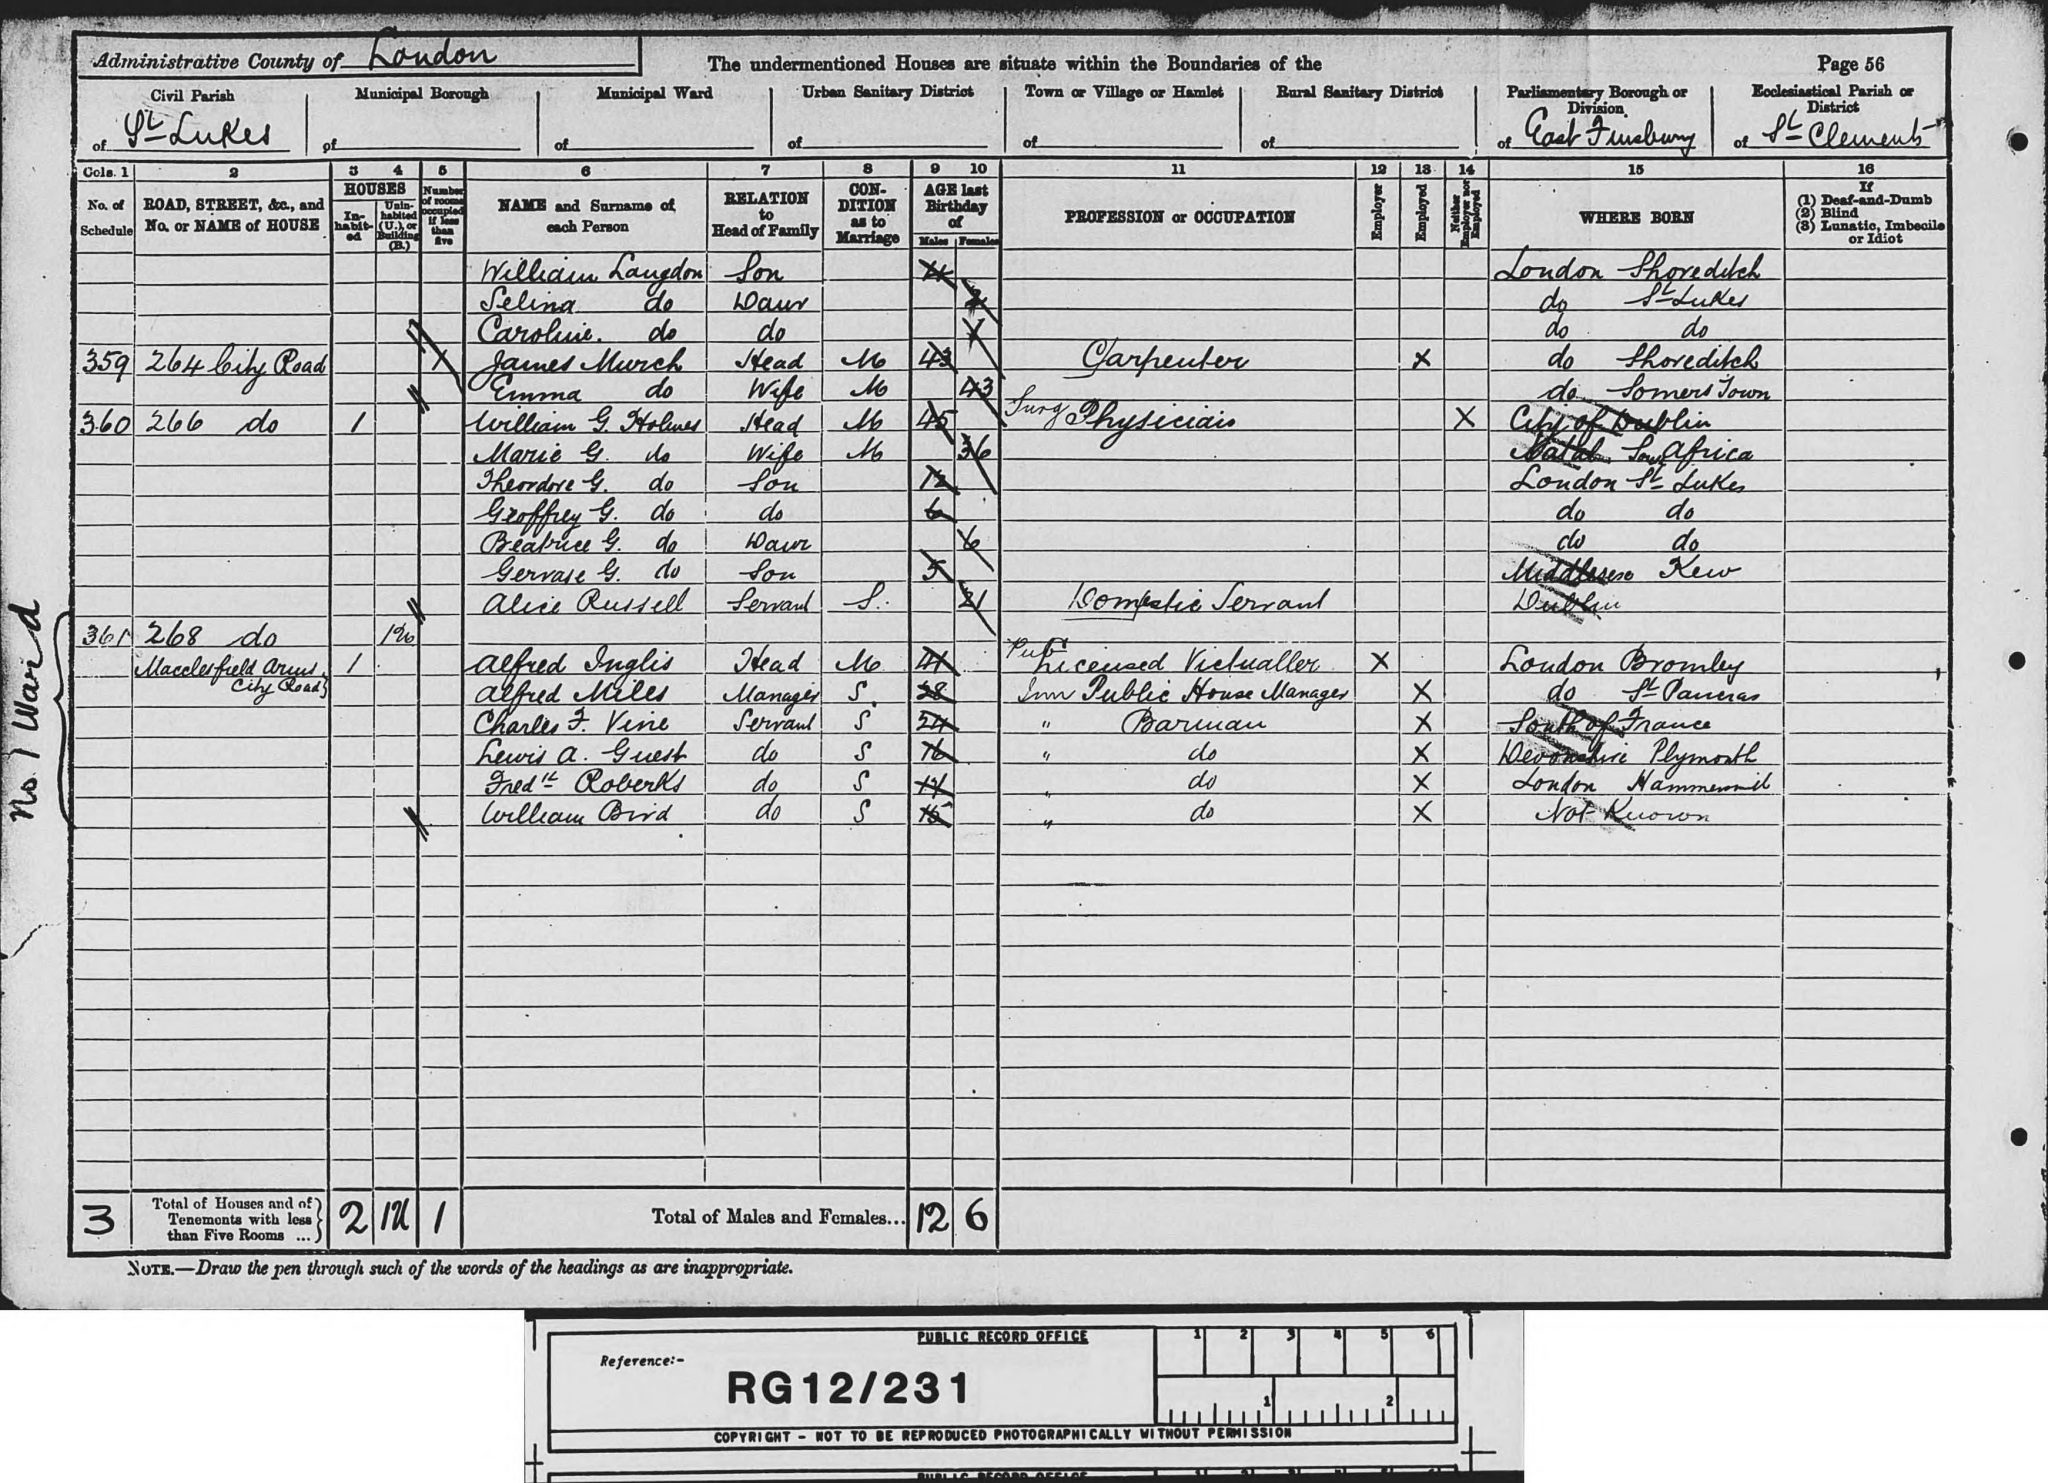 Administrative County of London
The undermentioned Houses are situate within the Boundaries of the
Page 56
Civil Parish of St Lukes
Municipal Borough of
Municipal Ward of
Urban Sanitary District of
Town or Village or Hamlet of
Rural Sanitary District of
Parliamentary Borough or Division of East Finsbury
Ecclesiastical Parish or District of St Clements
Cols. 1 2 3 4 5 6 7 8 9 10 11 12 13 14 15 16
No. of Schedule
ROAD, STREET, &c., and No. or NAME of HOUSE
HOUSES
In-habit-ed
Unin-habited (U.), or Building (B.)
Number of rooms occupied if less than five
NAME and Surname of each Person
RELATION to Head of Family
CON-DITION as to Marriage
AGE last Birthday of
Males Females
PROFESSION or OCCUPATION
Employer
Employed
Neither Employer nor Employed
WHERE BORN
If
(1) Deaf-and-Dumb
(2) Blind
(3) Lunatic, Imbecile or Idiot
William Langdon Son 4 London Shoreditch
Selina do Daur 2 do St Lukes
Caroline. do do 1 do do
359 264 City Road James Murch Head M 43 Carpenter X do Shoreditch
Emma do Wife M 43 do Somers Town
360 266 do 1 William G. Holmes Head M 45 Surg Physician X City of Dublin
Marie G. do Wife M 36 Natal Africa
Theordore G. do Son 12 London St Lukes
Geoffrey G. do do 6 do do
Beatrice G. do Daur 6 do do
Gervase G. do Son 5 Middlesex Kew
Alice Russell Servant S. 21 Domestic Servant Dublin
361 268 do
Macclesfield Arms City Road 1 Alfred Inglis Head M 41 Pub Licensed Victualler X London Bromley
Alfred Miles Manager S 28 Inn Public House Manager X do St Pancras
Charles F. Vine Servant S 24 " Barman X South of France
Lewis A. Guest do S 16 " do X Devonshire Plymouth
Fredk Roberts do S " do X London Hammersmid
William Bird do S 15 " do X Not Known
No. 1 Ward
3 Total of Houses and of Tenements with less than Five Rooms ... 2 1U 1 Total of Males and Females... 12 6
NOTE.—Draw the pen through such of the words of the headings as are inappropriate.
PUBLIC RECORD OFFICE
1 2 3 4 5 6
Reference:-
RG12/231
1 2
COPYRIGHT - NOT TO BE REPRODUCED PHOTOGRAPHICALLY WITHOUT PERMISSION
PUBLIC RECORD OFFICE